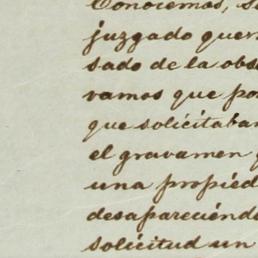 Conocemos, s
juzgado quer
sado de la obs
vamos que po
que solicitaba
el gravamen
una propied
desapareciend
solicitud un